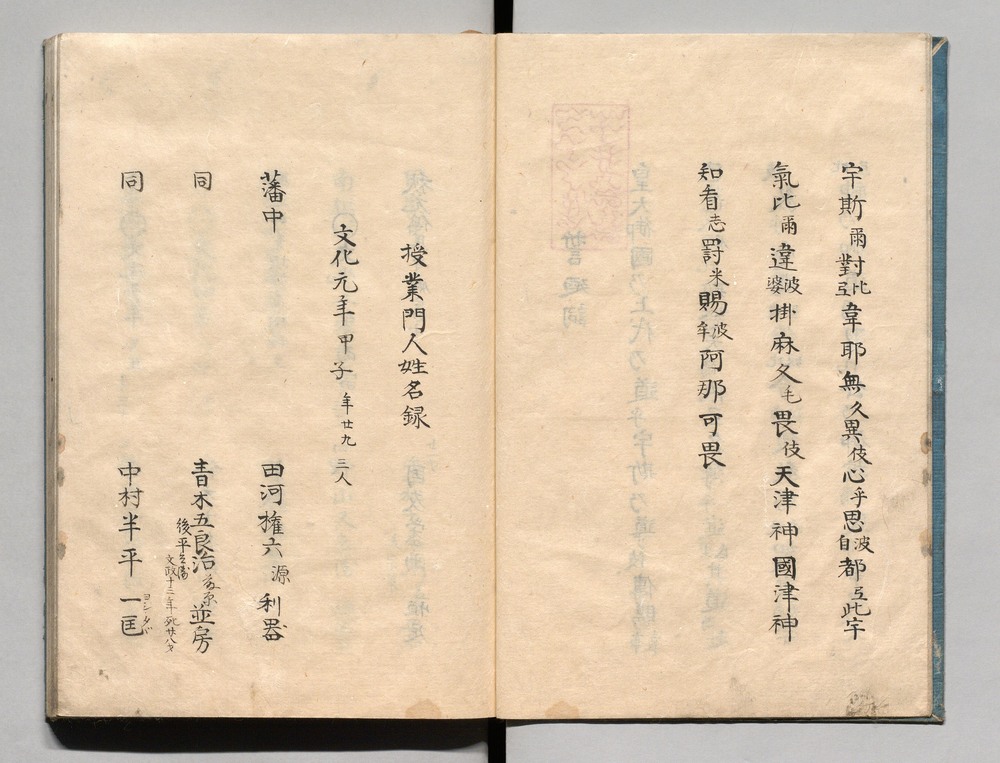 宇斯爾對比弖韋耶無久異伎心乎思波自都弖此宇
氣比爾違波婆掛麻久毛畏伎天津神國津神
知看志罸米賜波牟阿那可畏
授業門人姓名録
文化元年甲子 年廿九 三人
藩中 田河権六 源利器
同 青木五良治 並房
後平 文政十三年死廿八才
同 中村半平 一匡